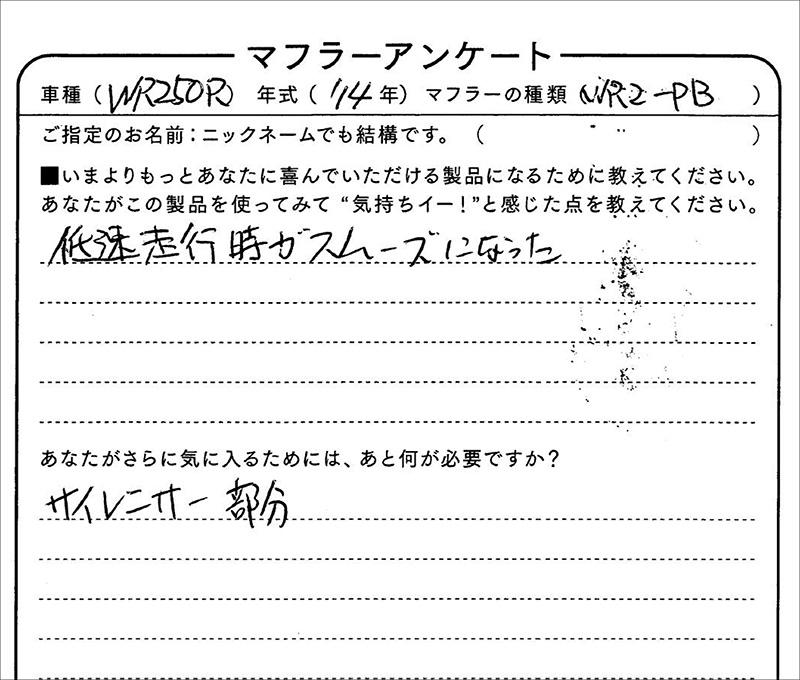 マフラーアンケート
車種（WR250R） 年式（'14年）マフラーの種類（WR2-PB ）
ご指定のお名前：ニックネームでも結構です。（ ）
■いまよりもっとあなたに喜んでいただける製品になるために教えてください。
あなたがこの製品を使ってみて“気持ちイー！”と感じた点を教えてください。
低速走行時がスムーズになった
あなたがさらに気に入るためには、あと何が必要ですか？
サイレンサー部分